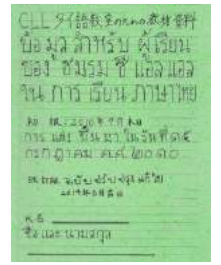 CLL タイ語教室のための教材資料
ข้อมูล สำหรับ ผู้เรียน
ของ ชมรม ซี แอล แอล
ใน การ เรียน ภาษาไทย
初 版:2010年7月
การ และ ขึ้น มา ใน วันที่ ๑๕
กรกฎาคม ค.ศ. ๒๐๑๐
改訂版 ฉบับ ปรับปรุง แก้ไข
氏名
ชื่อ และ นามสกุล